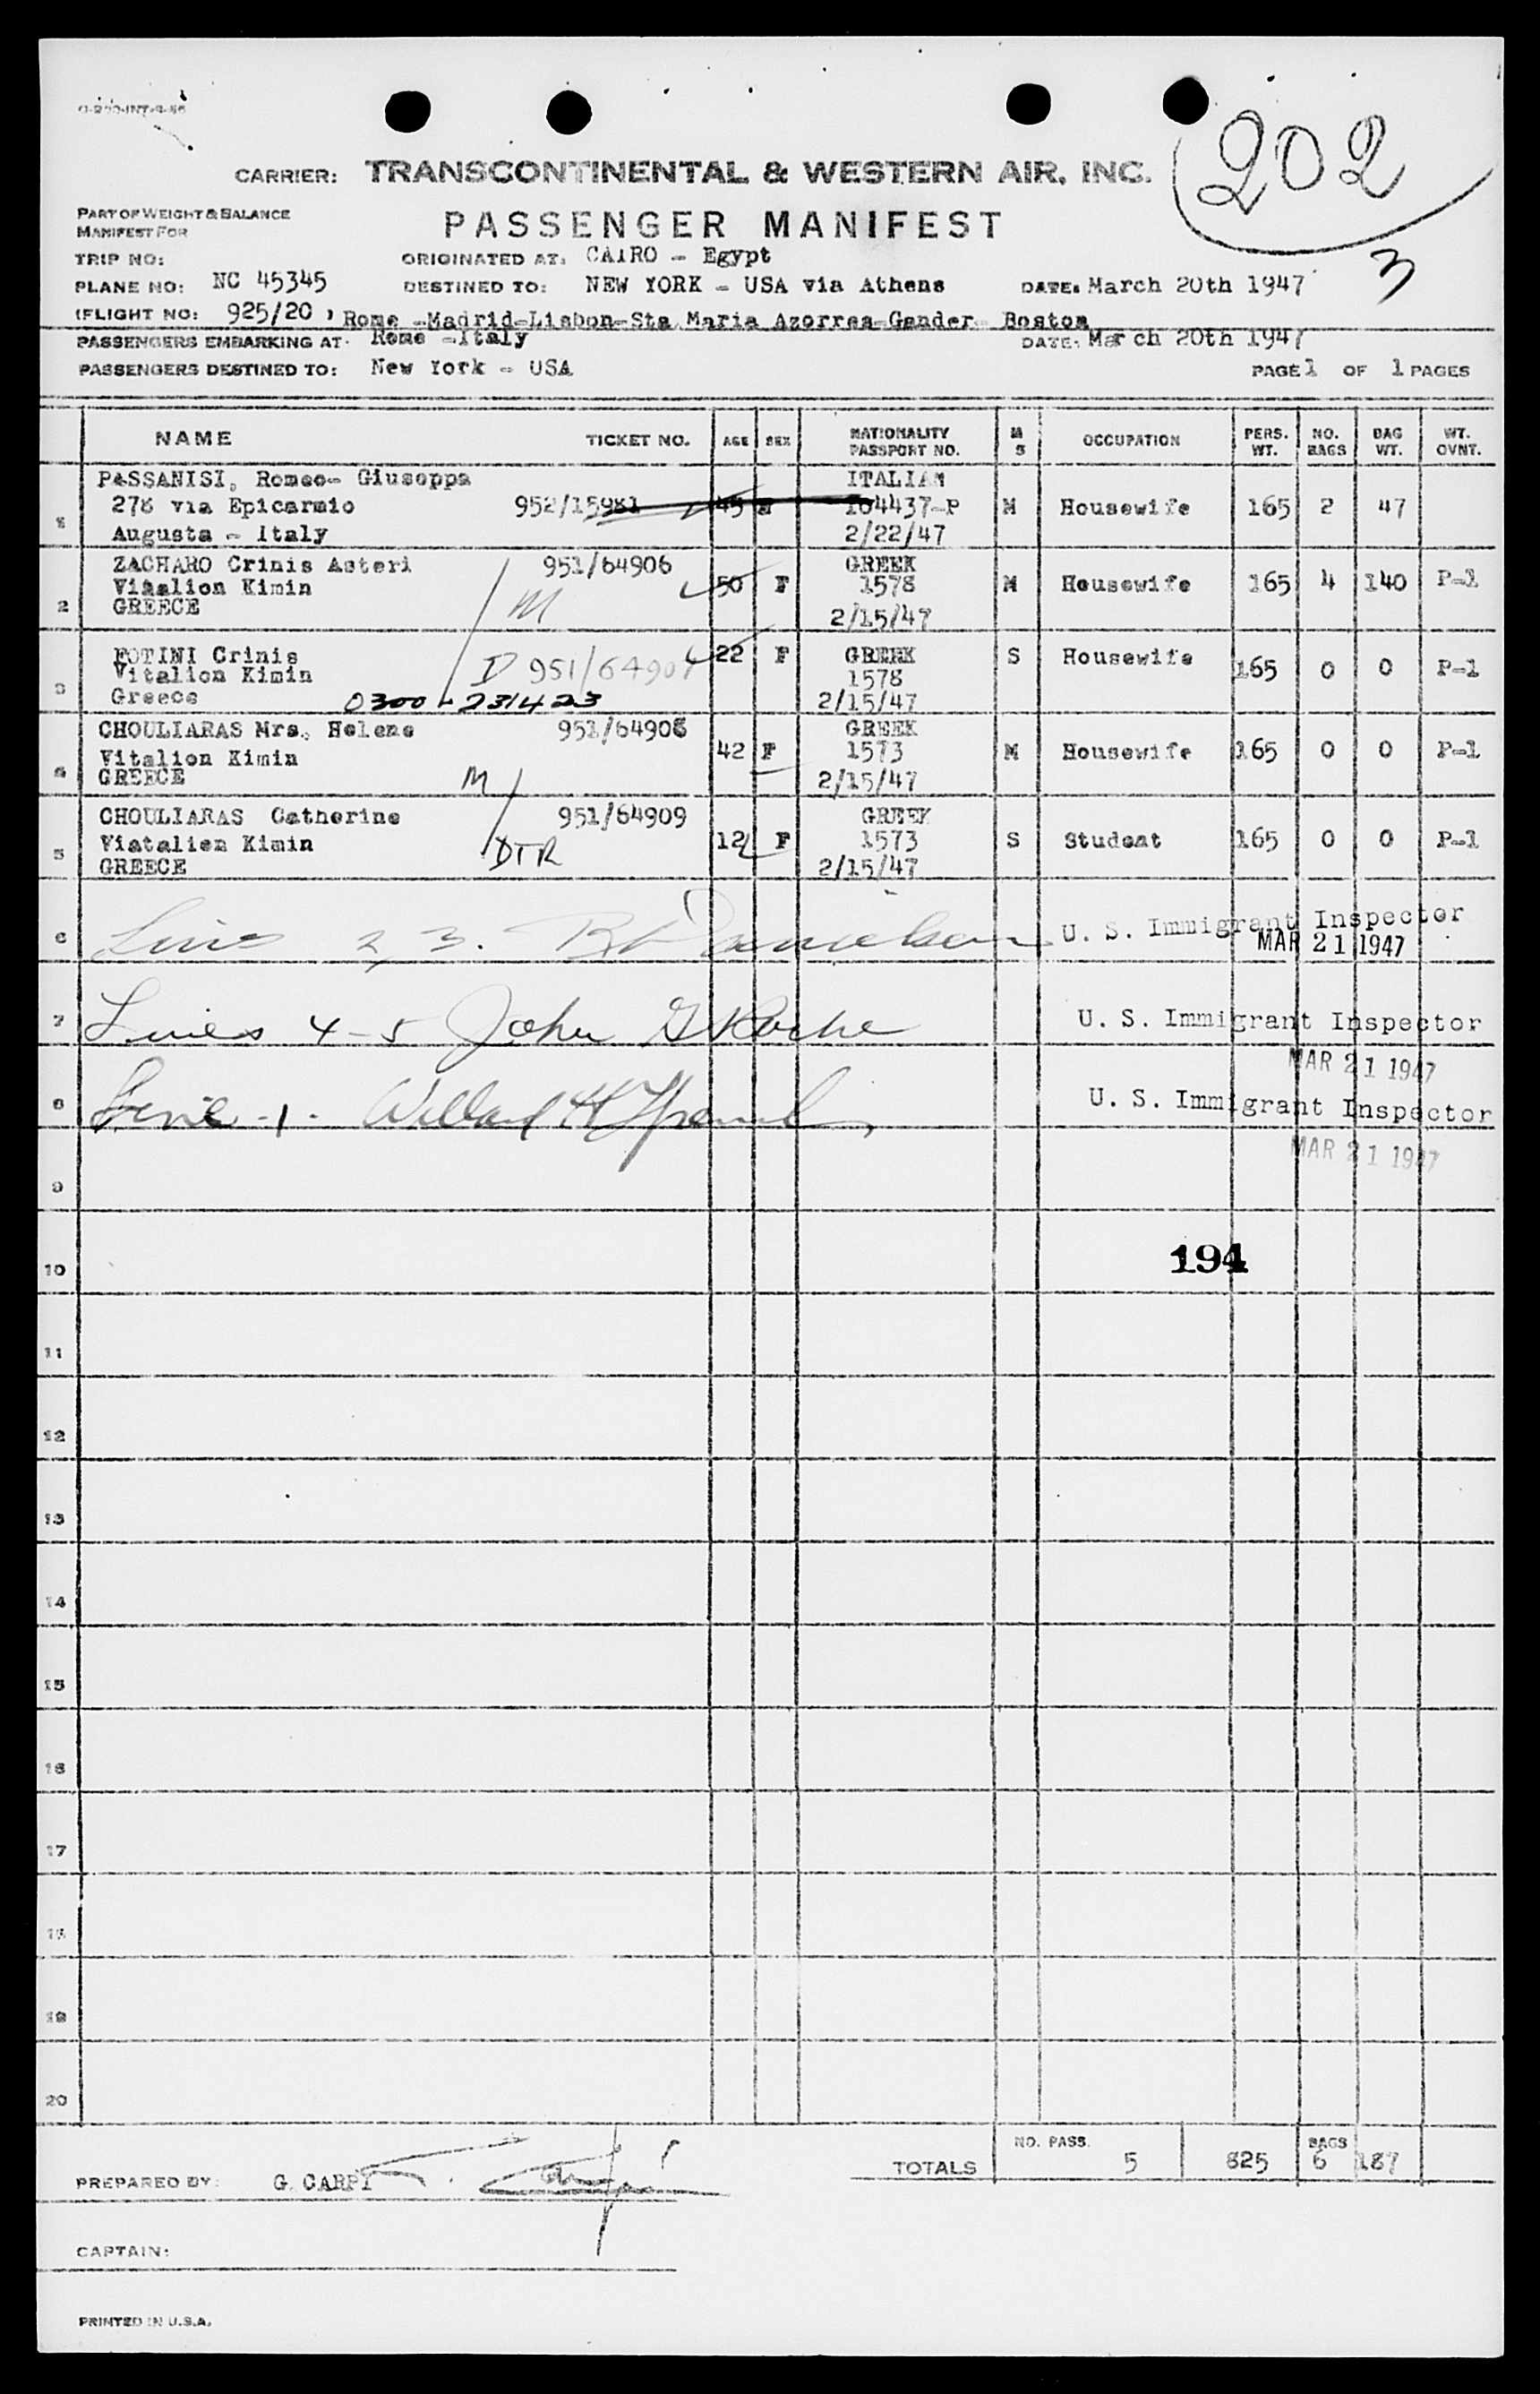 202
CARRIER: TRANSCONTINENTAL & WESTERN AIR, INC.
PART OF WEIGHT & BALANCE
MANIFEST FOR
PASSENGER MANIFEST
3
TRIP NO: ORIGINATED AT: CAIRO - Egypt
PLANE NO: NC 45345 DESTINED TO: NEW YORK - USA via Athens DATE: March 20th 1947
(FLIGHT NO: 925/20 ) Rome -Madrid-Lisbon-Sta Maria Azorres-Gander- Boston
PASSENGERS EMBARKING AT: Rome -Italy DATE: March 20th 1947
PASSENGERS DESTINED TO: New York - USA PAGE 1 OF 1 PAGES
NAME TICKET NO. AGE SEX NATIONALITY PASSPORT NO. M S OCCUPATION PERS. WT. NO. BAGS BAG WT. WT. OVNT.
PASSANISI, Romeo- Giuseppa ITALIAN
1 278 via Epicarmio 952/15981 45 104437-P M Housewife 165 2 47
Augusta - Italy 2/22/47
ZACHARO Crinis Asteri 951/64906 GREEK
2 Vitalion Kimin M 50 F 1578 M Housewife 165 4 140 P-1
GREECE 2/15/47
FOTINI Crinis 22 F GREEK S Housewife
3 Vitalion Kimin D 951/64907 1578 165 0 0 P-1
Greece 0300-231423 2/15/47
CHOULIARAS Mrs. Helene 951/64908 GREEK
4 Vitalion Kimin 42 F 1573 M Housewife 165 0 0 P-1
GREECE M 2/15/47
CHOULIARAS Catherine 951/64909 GREEK
5 Viatalien Kimin DTR 12 F 1573 S Student 165 0 0 P-1
GREECE 2/15/47
6 Lines 2, 3. U. S. Immigrant Inspector
MAR 21 1947
7 Lines 4-5 John G Roche U. S. Immigrant Inspector
MAR 21 1947
8 Line -1- U. S. Immigrant Inspector
MAR 21 1947
9
194
10
11
12
13
14
15
16
17
18
19
20
TOTALS NO. PASS. 5 825 BAGS 6 187
PREPARED BY: G. CARPI
CAPTAIN:
PRINTED IN U.S.A.